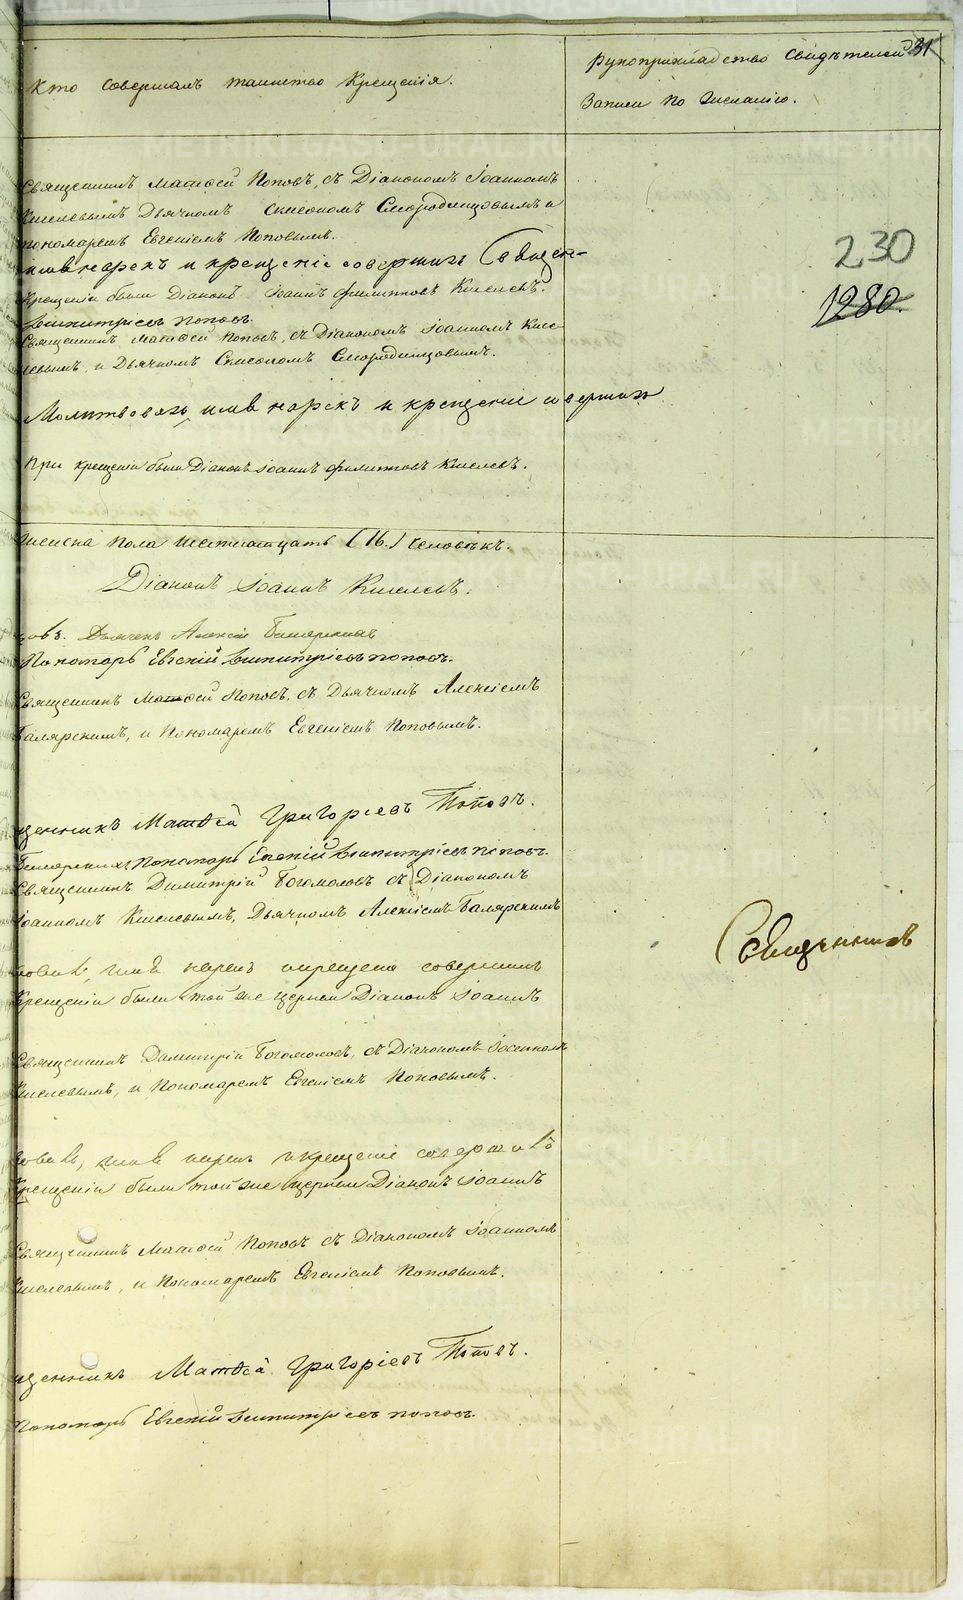 Кто совершалъ таинство Крещенія.
Рукоприкладство свидѣтелей 31
Записи по желанію.
Священникъ Матѳей Поповъ, съ Діакономъ Іоанномъ
Киселевымъ Дьячкомъ Симеономъ Смородинцовымъ и
пономаремъ Евгеніемъ Поповымъ.
имя нарекъ и крещеніе совершилъ Священ-
230
Крещеніи были Діаконъ Іоаннъ Филиповъ Киселевъ.
1280.
Димитріевъ Поповъ.
Священникъ Матѳей Поповъ, съ Діакономъ Іоанномъ Кисе
левымъ, и Дьячкомъ Симеономъ Смородинцовымъ.
Молитвовалъ, имя нарекъ и крещеніе совершилъ
При крещеніи были Діаконъ Іоаннъ Филиповъ Киселевъ.
женска пола шестнатцать (16.) человѣкъ.
Діаконъ Іоаннъ Киселевъ.
Дьячекъ Алексій
Пономарь Евгеній Димитріевъ Поповъ.
Священникъ Матѳей Поповъ, съ Дьячкомъ Алексіемъ
Балярскимъ, и Пономаремъ Евгеніемъ Поповымъ.
щенникъ Матѳей Григорьевъ Поповъ.
Пономарь Евгеній Димитріевъ Поповъ.
Священникъ Димитрій Богомоловъ съ Діакономъ
Іоанномъ Киселевымъ, Дьячкомъ Алексіемъ Балярскимъ
Священникъ
имя нарекъ и крещеніе совершилъ
Крещеніи были той же церкви Діаконъ Іоаннъ
Священникъ Димитрій Богомоловъ, съ Діакономъ Іоанномъ
Киселевымъ, и Пономаремъ Евгеніемъ Поповымъ.
имя нарекъ и крещеніе совершилъ
Крещеніи были той же церкви Діаконъ Іоаннъ
Священникъ Матѳей Поповъ съ Діакономъ Іоанномъ
Киселевымъ, и Пономаремъ Евгеніемъ Поповымъ.
щенникъ Матѳей Григорьевъ Поповъ.
Пономарь Евгеній Димитріевъ Поповъ.
METRIKI.GASO-URAL.RU